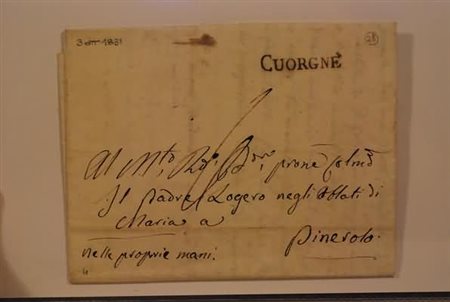 3 ott 1831
CUORGNÈ
Al M.to Rdo, prone Colmo
Il Padre Logero negli Oblati di
Maria a
Pinerolo.
nelle proprie mani.